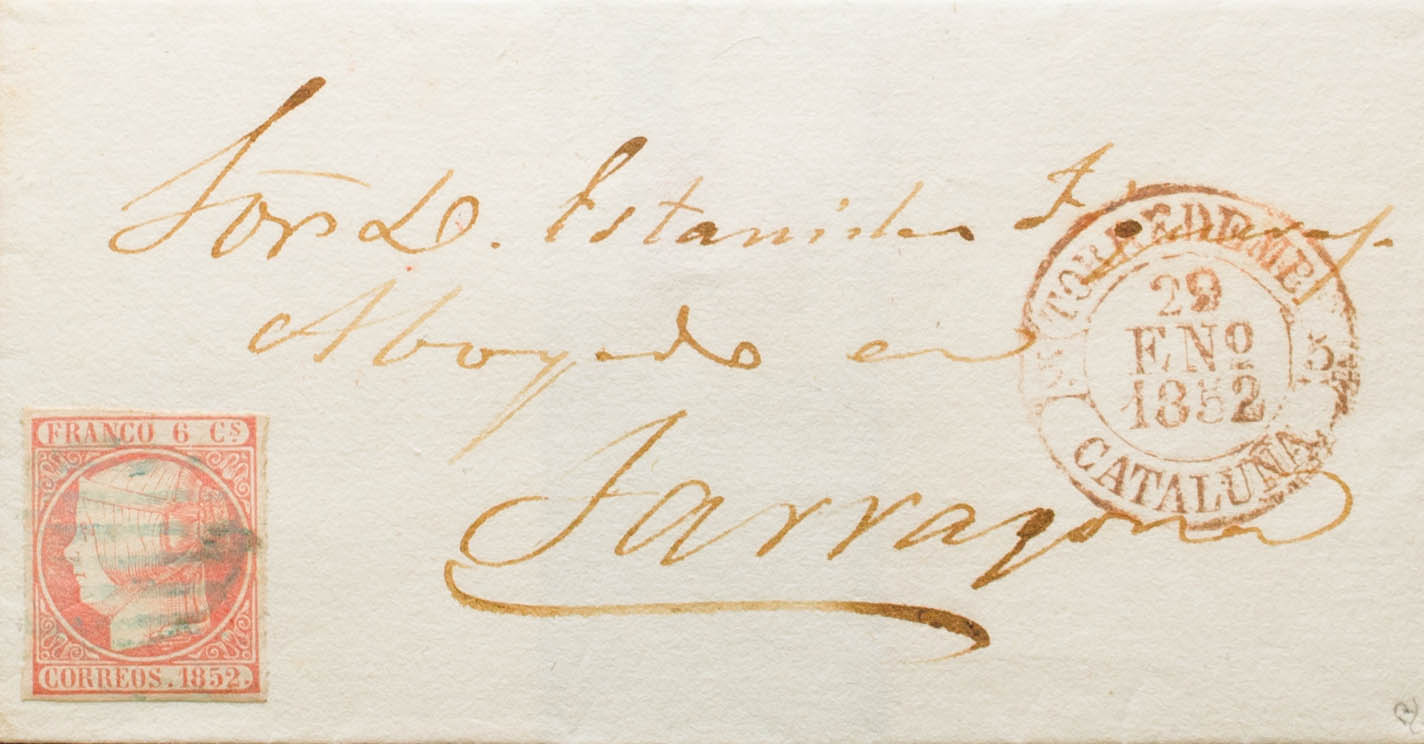 Sor D. Estanislao
Abogado en
Tarragona
TORREDEMB
29
ENO
1852
5
CATALUÑA
FRANCO 6 CS
CORREOS.1852.